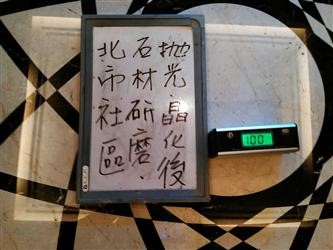 拋光晶化後
石材研磨.
北市社區
100